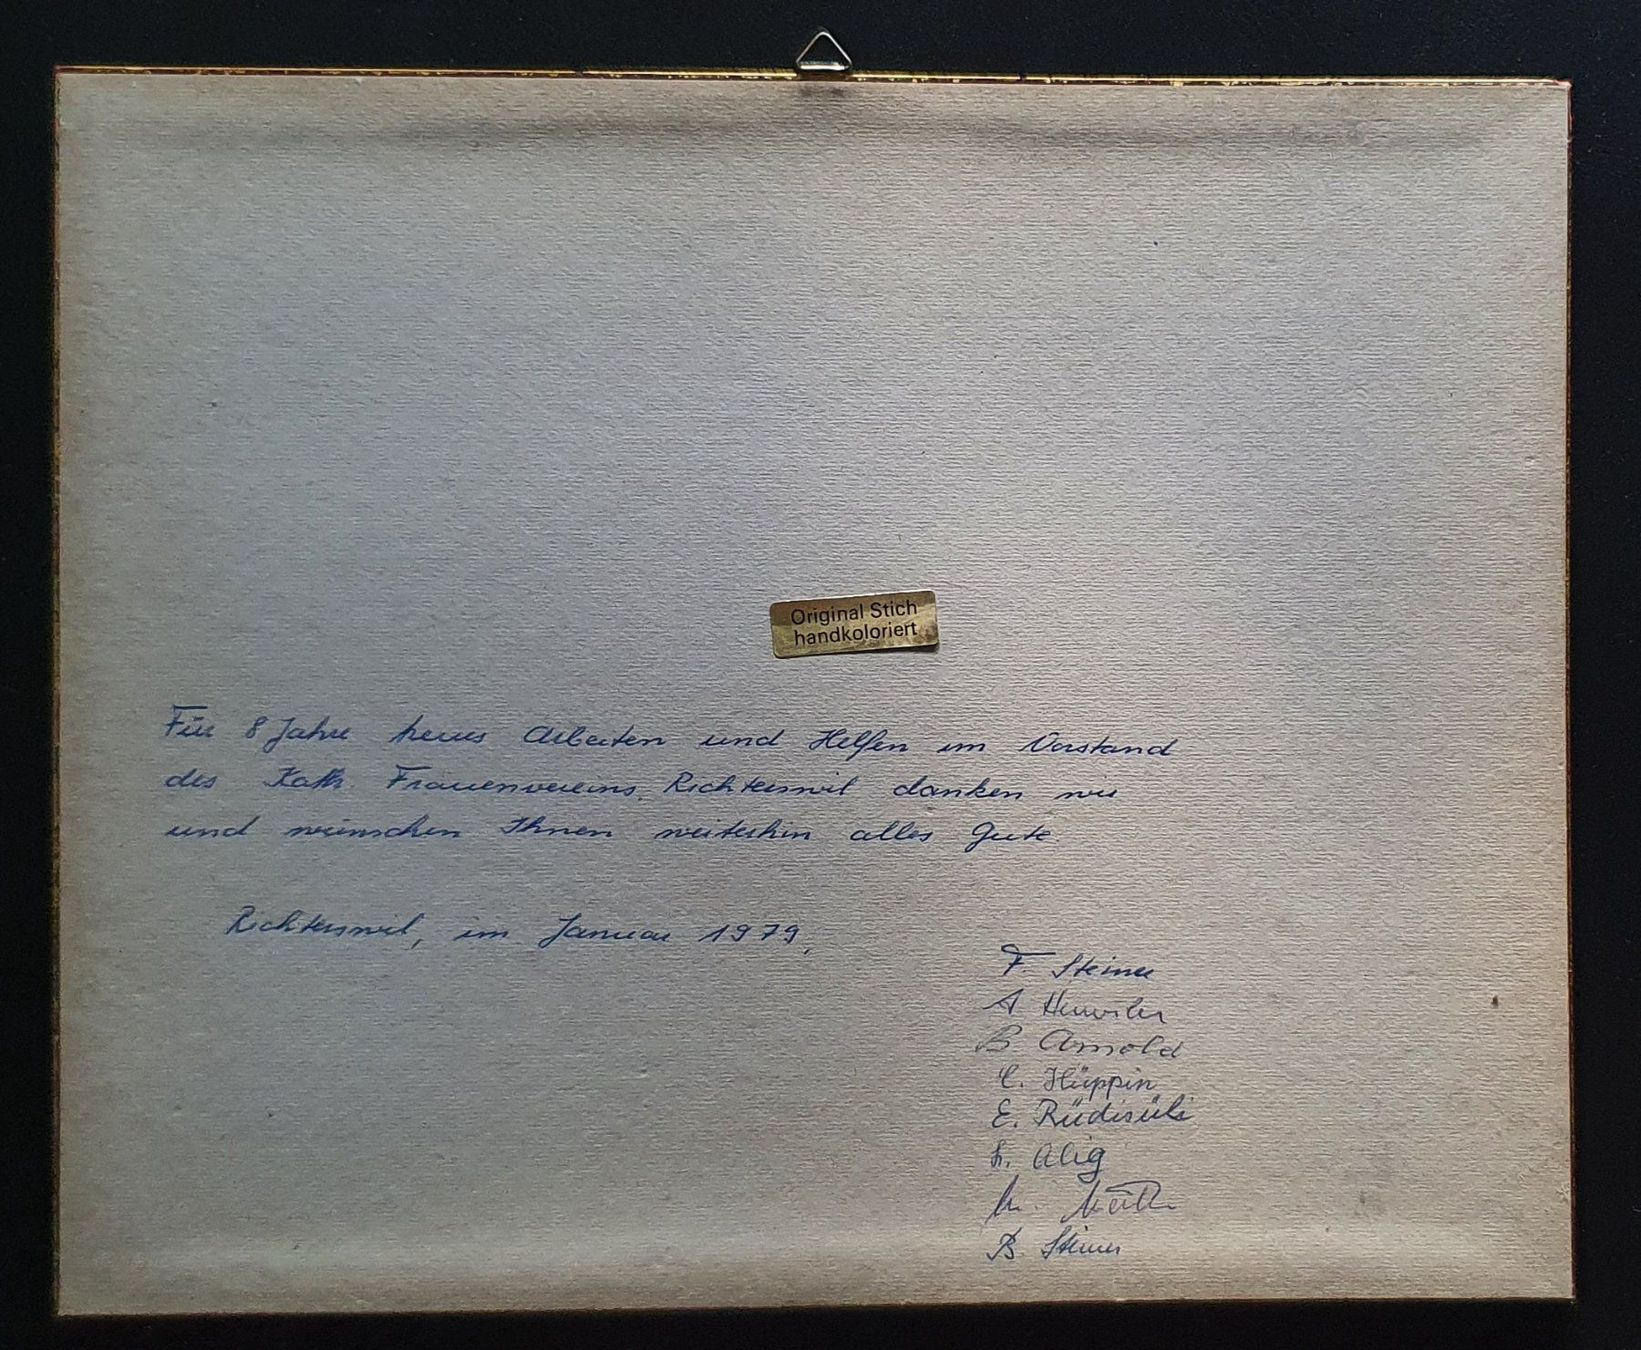 Original Stich
handkoloriert
Für 8 Jahre treues Arbeiten und Helfen im Vorstand
des Kath. Frauenvereins Richterswil danken wir
und wünschen Ihnen weiterhin alles Gute.
Richterswil, im Januar 1979,
F. Steiner
A
B Arnold
C. Hüppin
E. Rüdisüli
Alig
B. Steiner